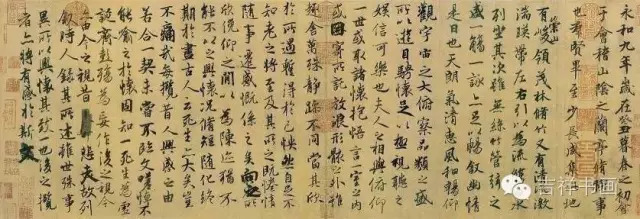 永和九年歲在癸丑暮春之初會
于會稽山陰之蘭亭脩稧事
也群賢畢至少長咸集此地
有崇山峻領茂林脩竹又有清流激
湍暎帶左右引以為流觴曲水
列坐其次雖無絲竹管弦之
盛一觴一詠亦足以暢叙幽情
是日也天朗氣清惠風和暢仰
觀宇宙之大俯察品類之盛
所以遊目騁懷足以極視聽之
娛信可樂也夫人之相與俯仰
一世或取諸懷抱悟言一室之內
或因寄所託放浪形骸之外雖
趣舍萬殊靜躁不同當其欣
於所遇蹔得於己怏然自足不
知老之將至及其所之既惓情
隨事遷感慨係之矣向之所
欣俛仰之間以為陳迹猶不
能不以之興懷況脩短隨化終
期於盡古人云死生亦大矣豈
不痛哉每攬昔人興感之由
若合一契未嘗不臨文嗟悼不
能喻之於懷固知一死生為虛
誕齊彭殤為妄作後之視今
亦由今之視昔悲夫故列
叙時人錄其所述雖世殊事
異所以興懷其致一也後之攬
者亦將有感於斯文
吉祥书画